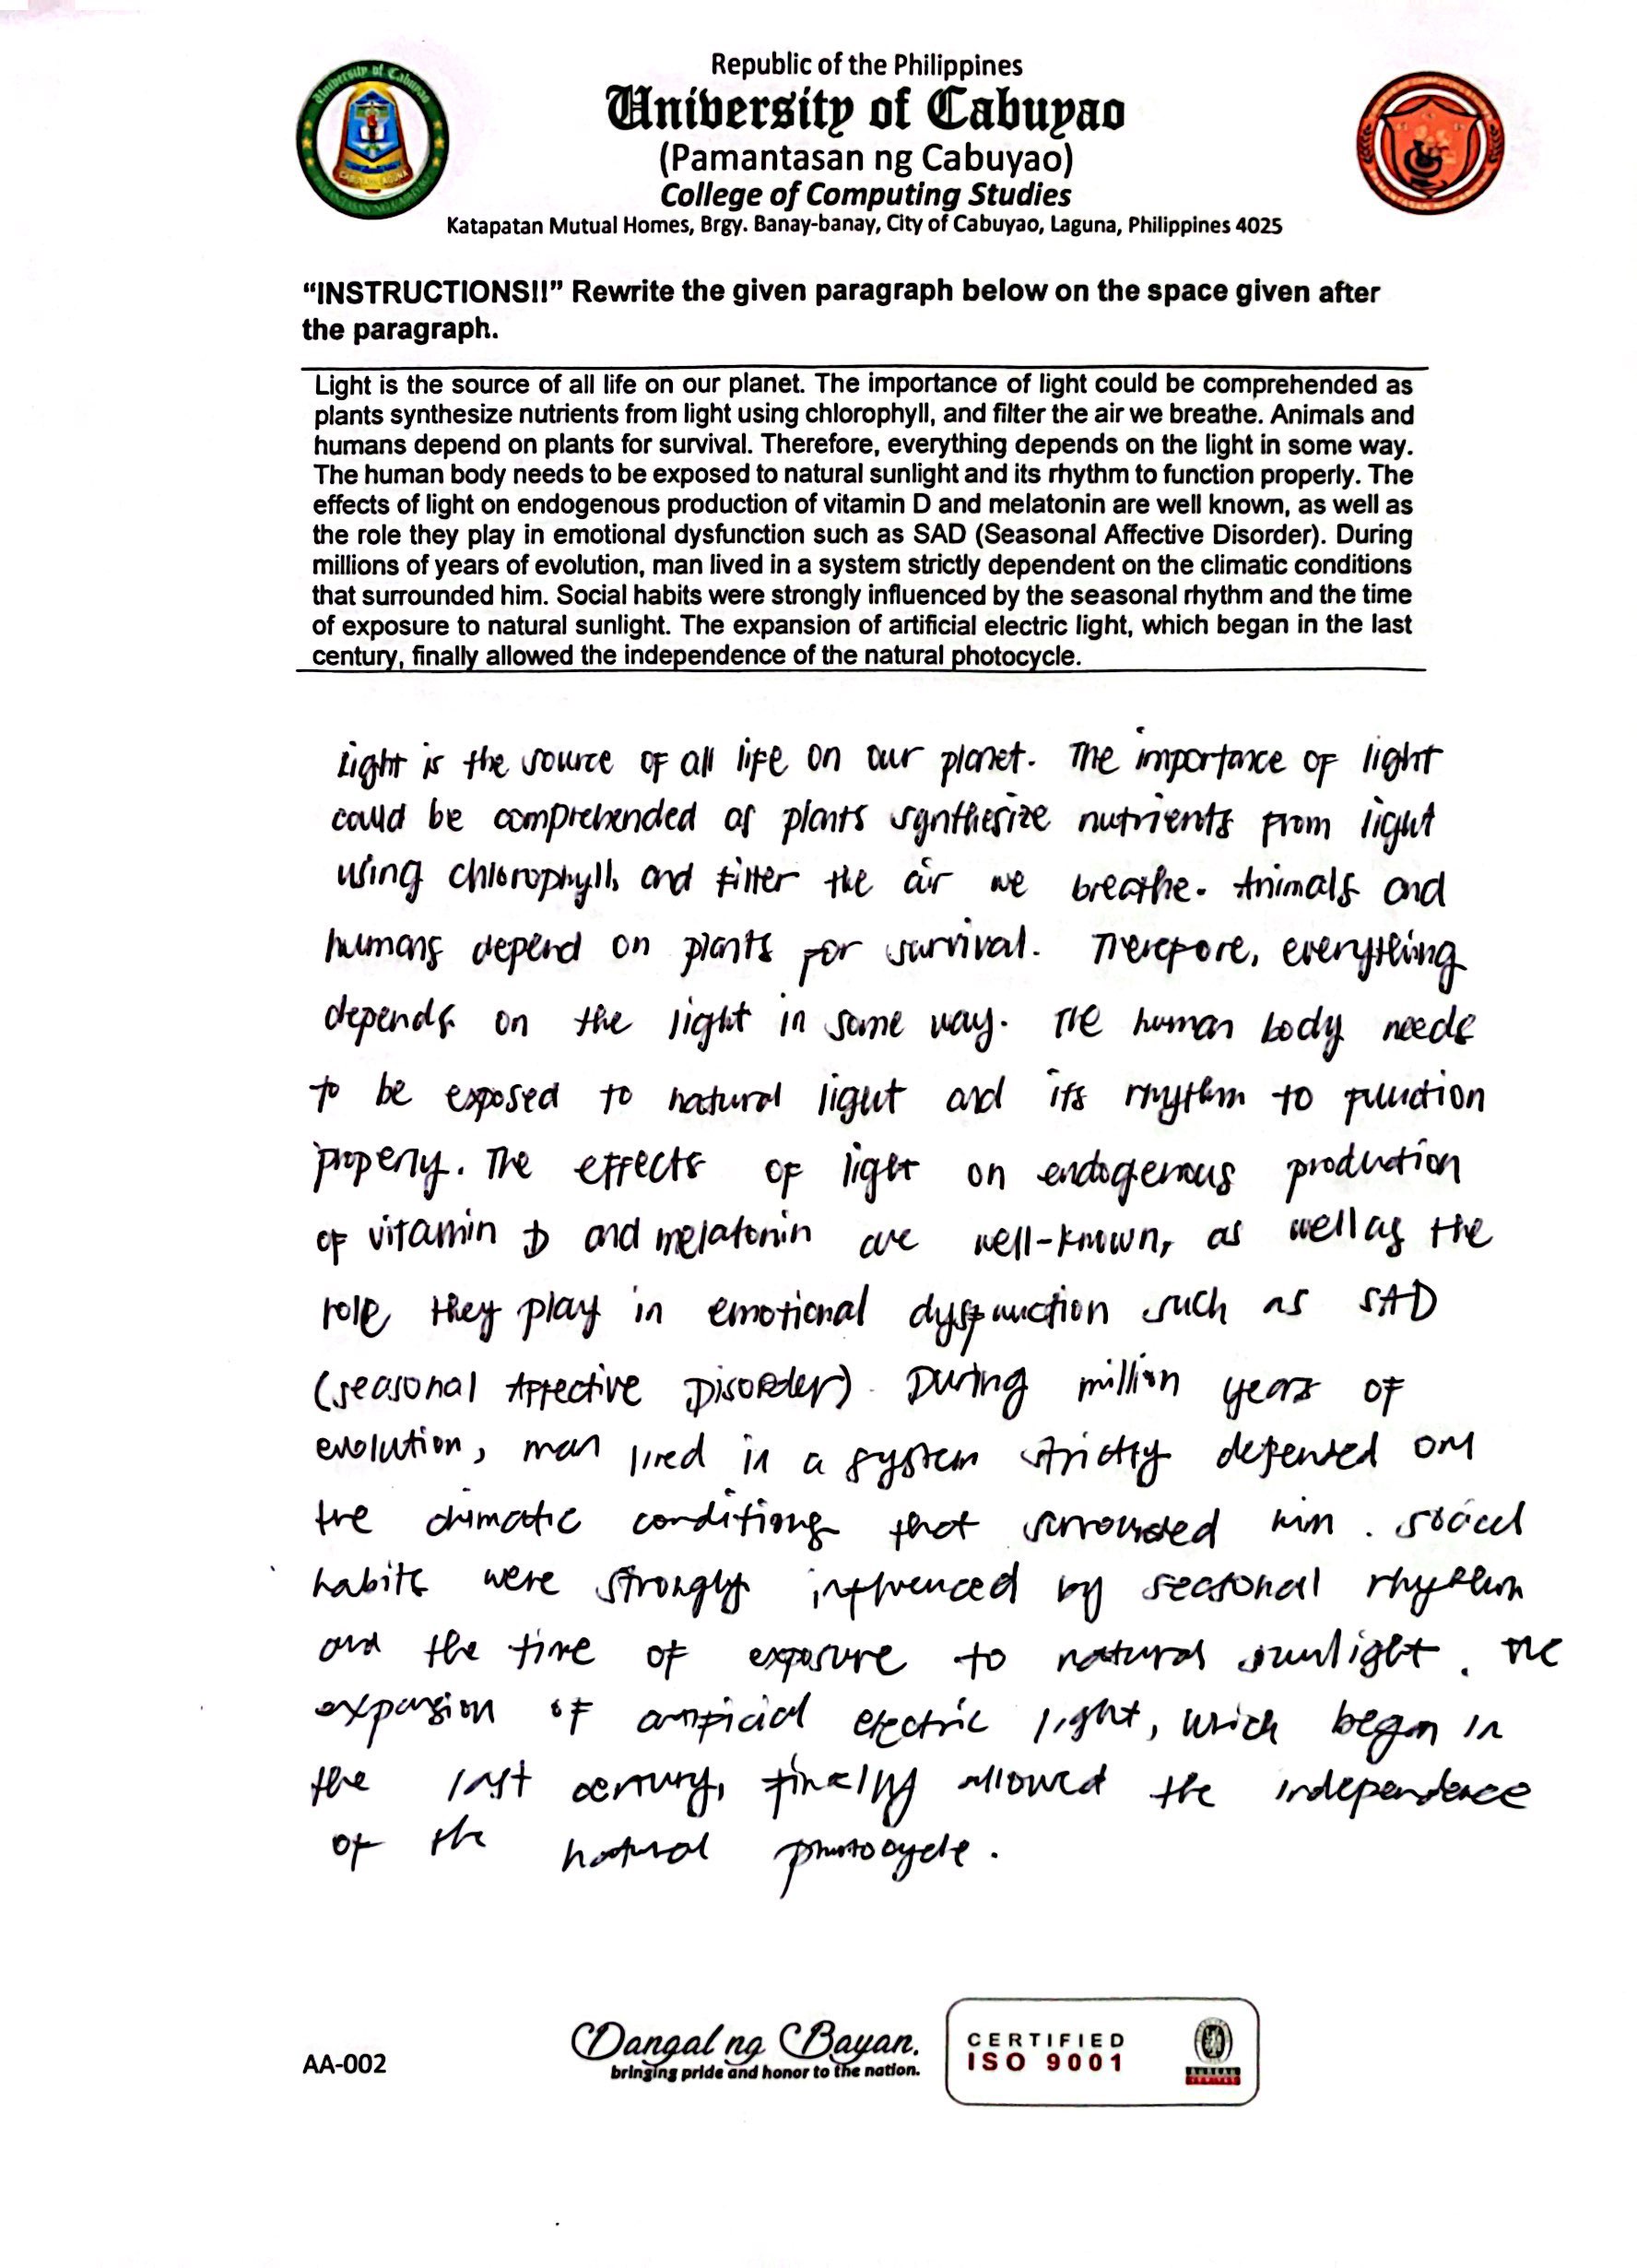 Republic of the Philippines
University of Cabuyao
(Pamantasan ng Cabuyao)
College of Computing Studies
Katapatan Mutual Homes, Brgy. Banay-banay, City of Cabuyao, Laguna, Philippines 4025
“INSTRUCTIONS!!” Rewrite the given paragraph below on the space given after
the paragraph.
Light is the source of all life on our planet. The importance of light could be comprehended as
plants synthesize nutrients from light using chlorophyll, and filter the air we breathe. Animals and
humans depend on plants for survival. Therefore, everything depends on the light in some way.
The human body needs to be exposed to natural sunlight and its rhythm to function properly. The
effects of light on endogenous production of vitamin D and melatonin are well known, as well as
the role they play in emotional dysfunction such as SAD (Seasonal Affective Disorder). During
millions of years of evolution, man lived in a system strictly dependent on the climatic conditions
that surrounded him. Social habits were strongly influenced by the seasonal rhythm and the time
of exposure to natural sunlight. The expansion of artificial electric light, which began in the last
century, finally allowed the independence of the natural photocycle.
Light is the source of all life on our planet. The importance of light
could be comprehended as plants synthesize nutrients from light
using chlorophyll, and filter the air we breathe. Animals and
humans depend on plants for survival. Therefore, everything
depends on the light in some way. The human body needs
to be exposed to natural light and its rhythm to function
properly. The effects of light on endogenous production
of vitamin D and melatonin are well-known, as well as the
role they play in emotional dysfunction such as SAD
(Seasonal Affective Disorder). During million years of
evolution, man lived in a system strictly depented on
the climatic conditions that surrounded him. Social
habits were strongly influenced by seasonal rhythm
and the time of exposure to natural sunlight. The
expansion of artificial electric light, which began in
the last century, finally allowed the independence
of the natural photocycle.
AA-002
Dangal ng Bayan.
bringing pride and honor to the nation.
CERTIFIED
ISO 9001